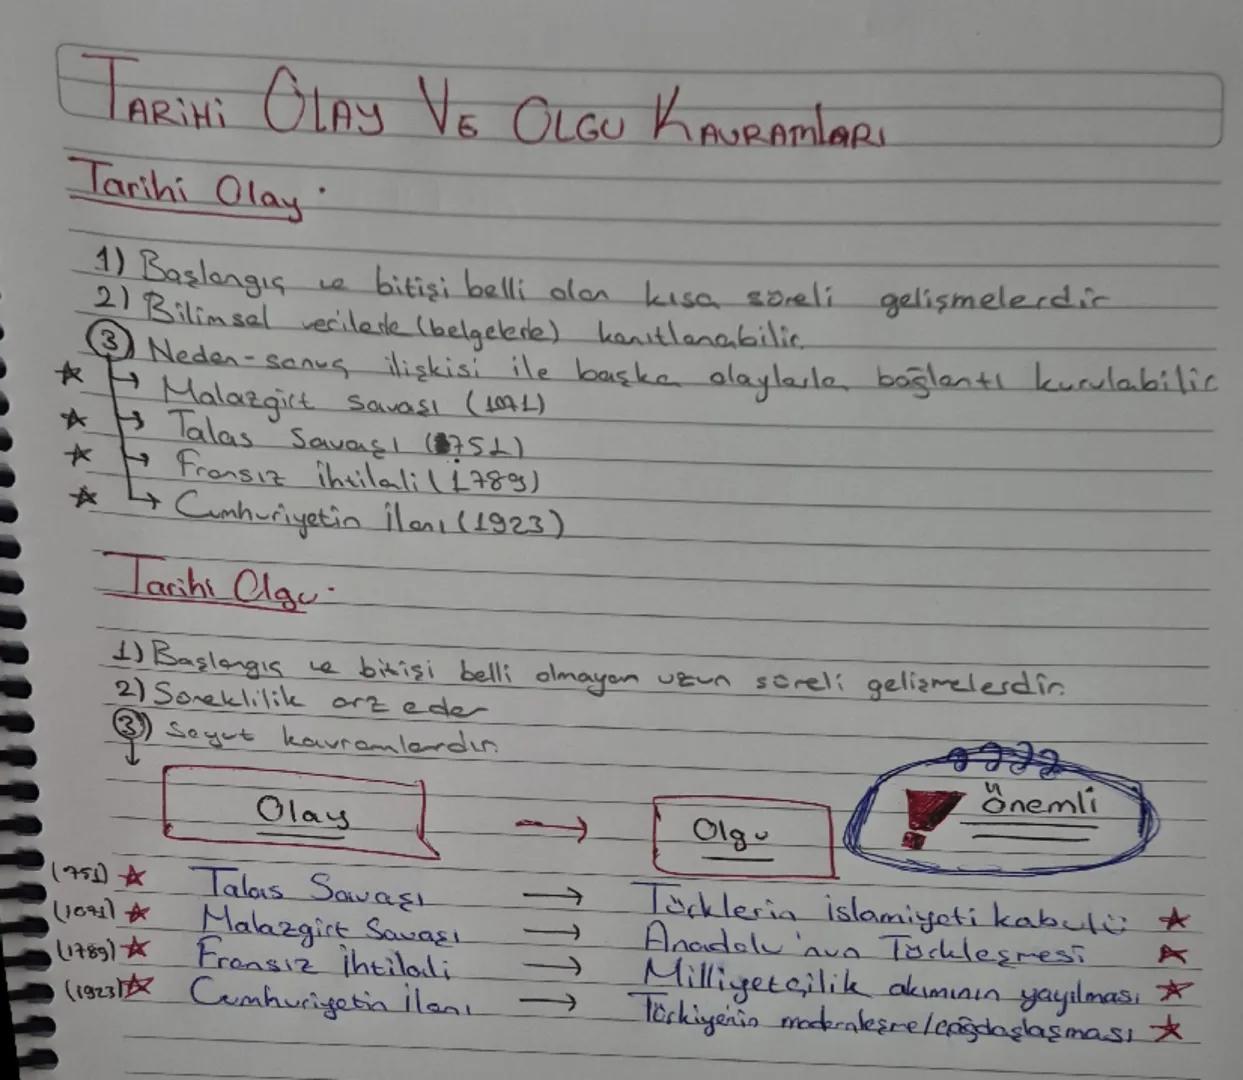 TARİHİ OLAY VE OLGU KAVRAMLARI
Tarihi Olay:
1) Başlangıç ve bitişi belli olan kısa süreli gelişmelerdir
2) Bilimsel verilerle (belgelerle) kanıtlanabilir.
3) Neden-sonuç ilişkisi ile başka olaylarla bağlantı kurulabilir
Malazgirt Savaşı (1071)
Talas Savaşı (751)
Fransız İhtilali (1789)
Cumhuriyetin İlanı (1923)
Tarihi Olgu:
1) Başlangıç ve bitişi belli olmayan uzun süreli gelişmelerdir.
2) Süreklilik arz eder
3) Soyut kavramlardır.
Olay → Olgu
! Önemli
(751) Talas Savaşı → Türklerin islamiyeti kabulü
(1071) Malazgirt Savaşı → Anadolu'nun Türkleşmesi
(1789) Fransız İhtilali → Milliyetçilik akımının yayılması
(1923) Cumhuriyetin İlanı → Türkiyenin modernleşme/çağdaşlaşması